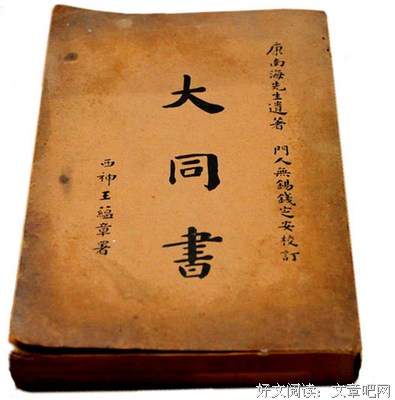 康南海先生遺著 門人無錫錢定安校訂
大同書
西神王蘊章署
好文阅读：文章吧网